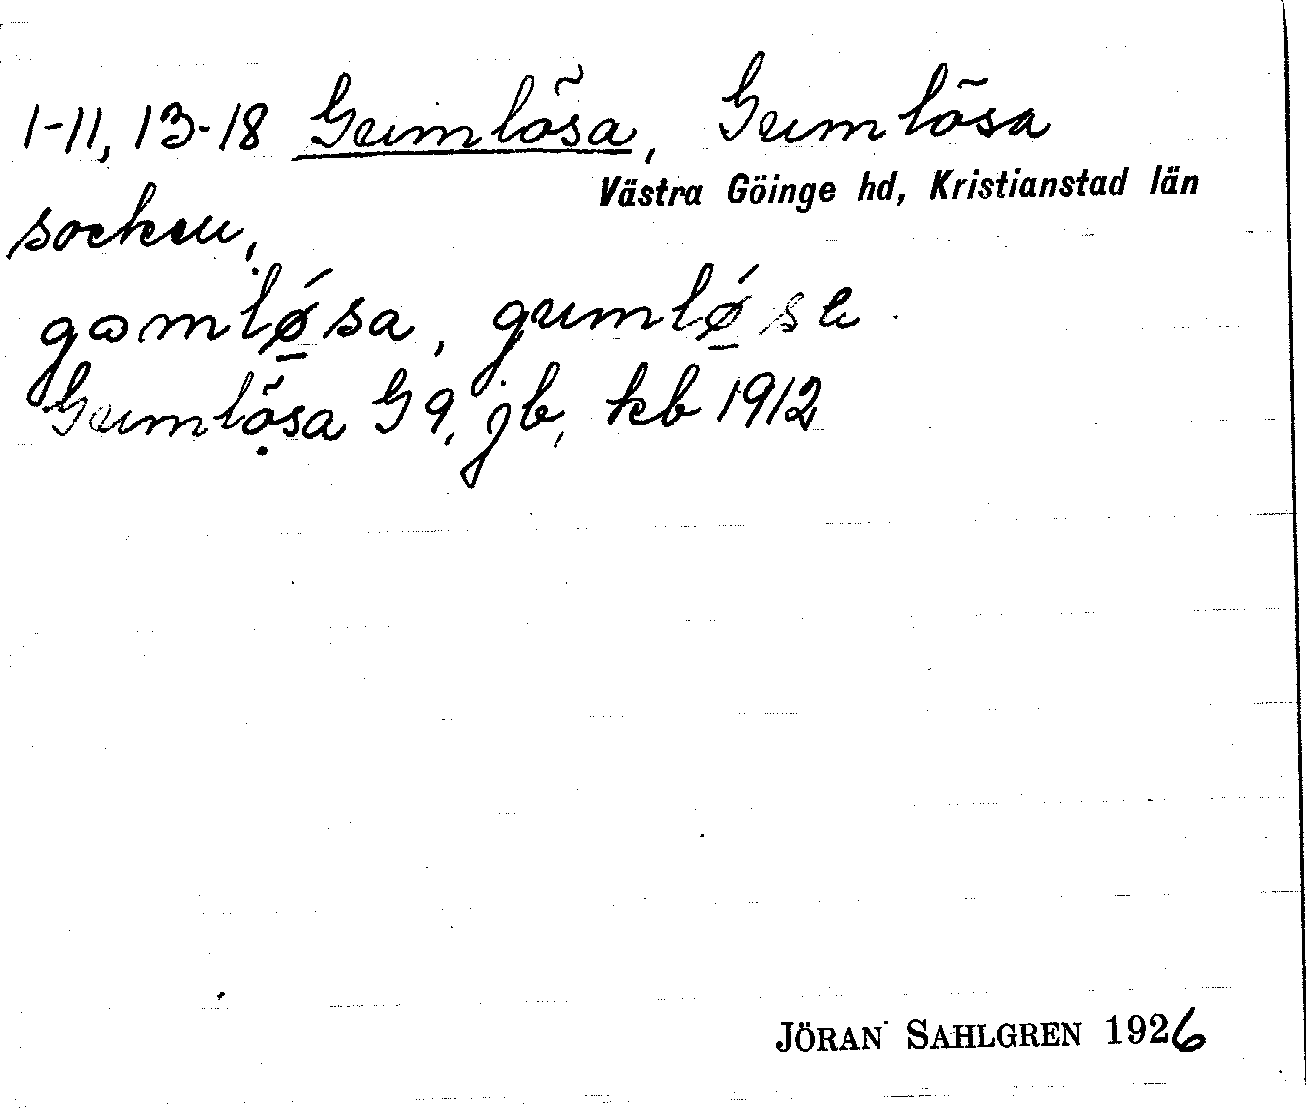 1-11, 13-18 Gumlösa, Gumlösa
Västra Göinge hd, Kristianstad län
socken.
gɷmlǿ̱sa, gumlǿ̱sa
Gumlösa G 9, jb, kb 1912
JÖRAN SAHLGREN 1926